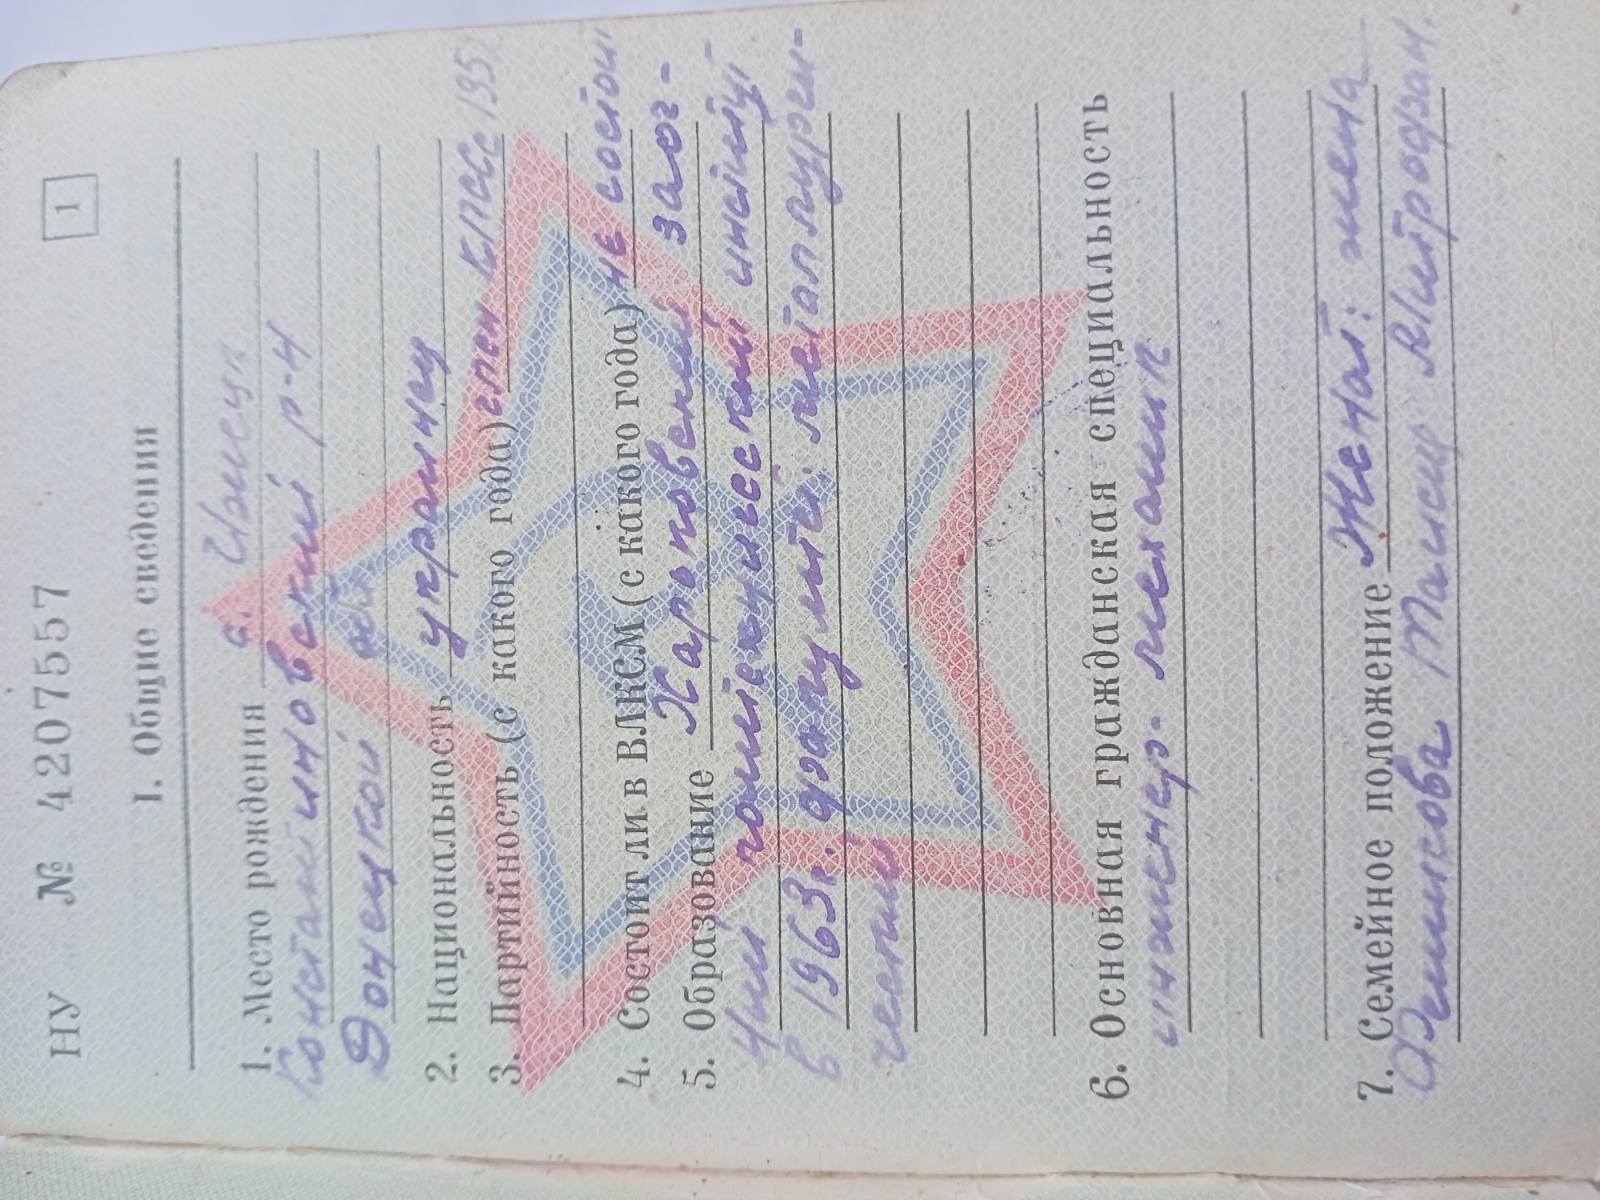 НУ № 4207557
1
I. Общие сведения
1. Место рождения с.
Константиновский р-н
Донецкой обл.
2. Национальность украинец
3. Партийность (с какого года) член КПСС 195
4. Состоит ли в ВЛКСМ (с какого года) не состоит
5. Образование Харьковский заоч-
ный политехнический институт
в 1963г. факультет: металлурги-
ческий
6. Основная гражданская специальность
инженер-механик
7. Семейное положение Женат: жена
Таисия Митрофан.